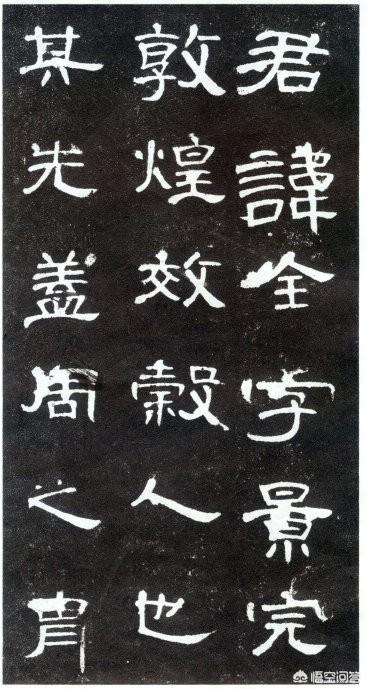 君諱全字景完
敦煌效穀人也
其先蓋周之胄
悟空问答